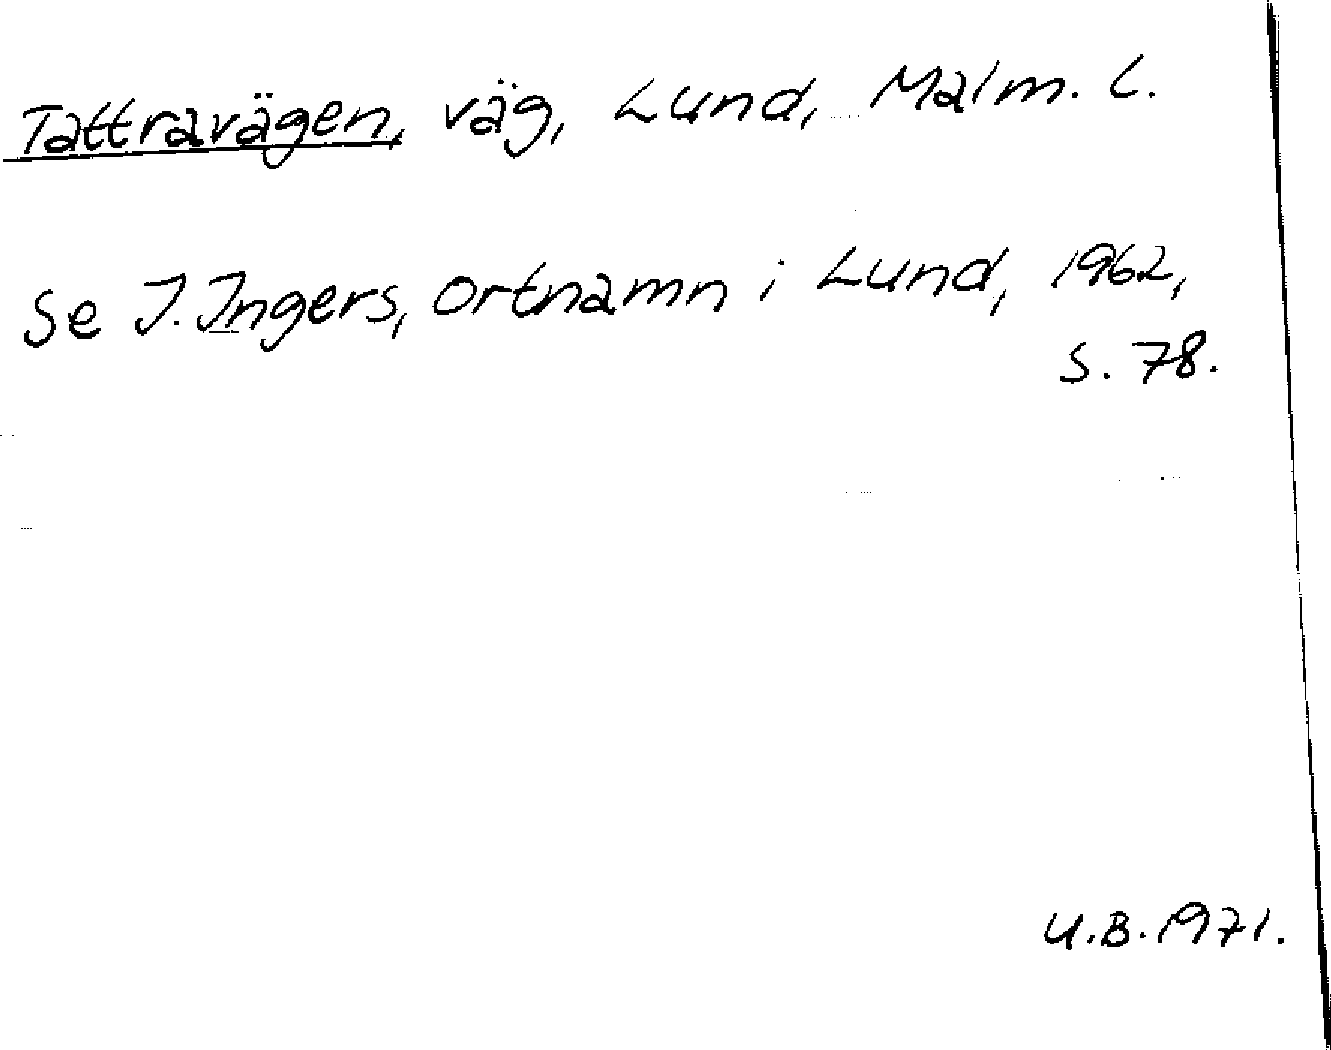 Tattravägen, väg, Lund, Malm. L.
Se I. Ingers, Ortnamn i Lund, 1962,
s. 78.
U.B. 1971.